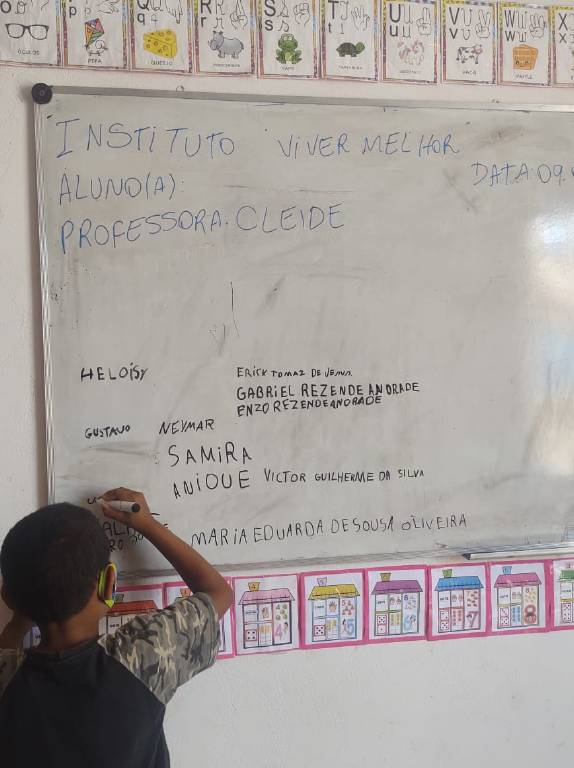 O
P p
Q q
R r
S s
T t
U u
V v
W w
X x
ÓCULOS
PIPA
QUEIJO
SAPO
VACA
INSTITUTO VIVER MELHOR
DATA 09.
ALUNO(A):
PROFESSORA. CLEIDE
HELOISY
ERICK TOMAZ DE
GABRIEL REZENDE ANDRADE
ENZO REZENDE ANDRADE
GUSTAVO NEYMAR
SAMIRA
ANIQUE VICTOR GUILHERME DA SILVA
MARIA EDUARDA DE SOUSA OLIVEIRA
5
6
7
8